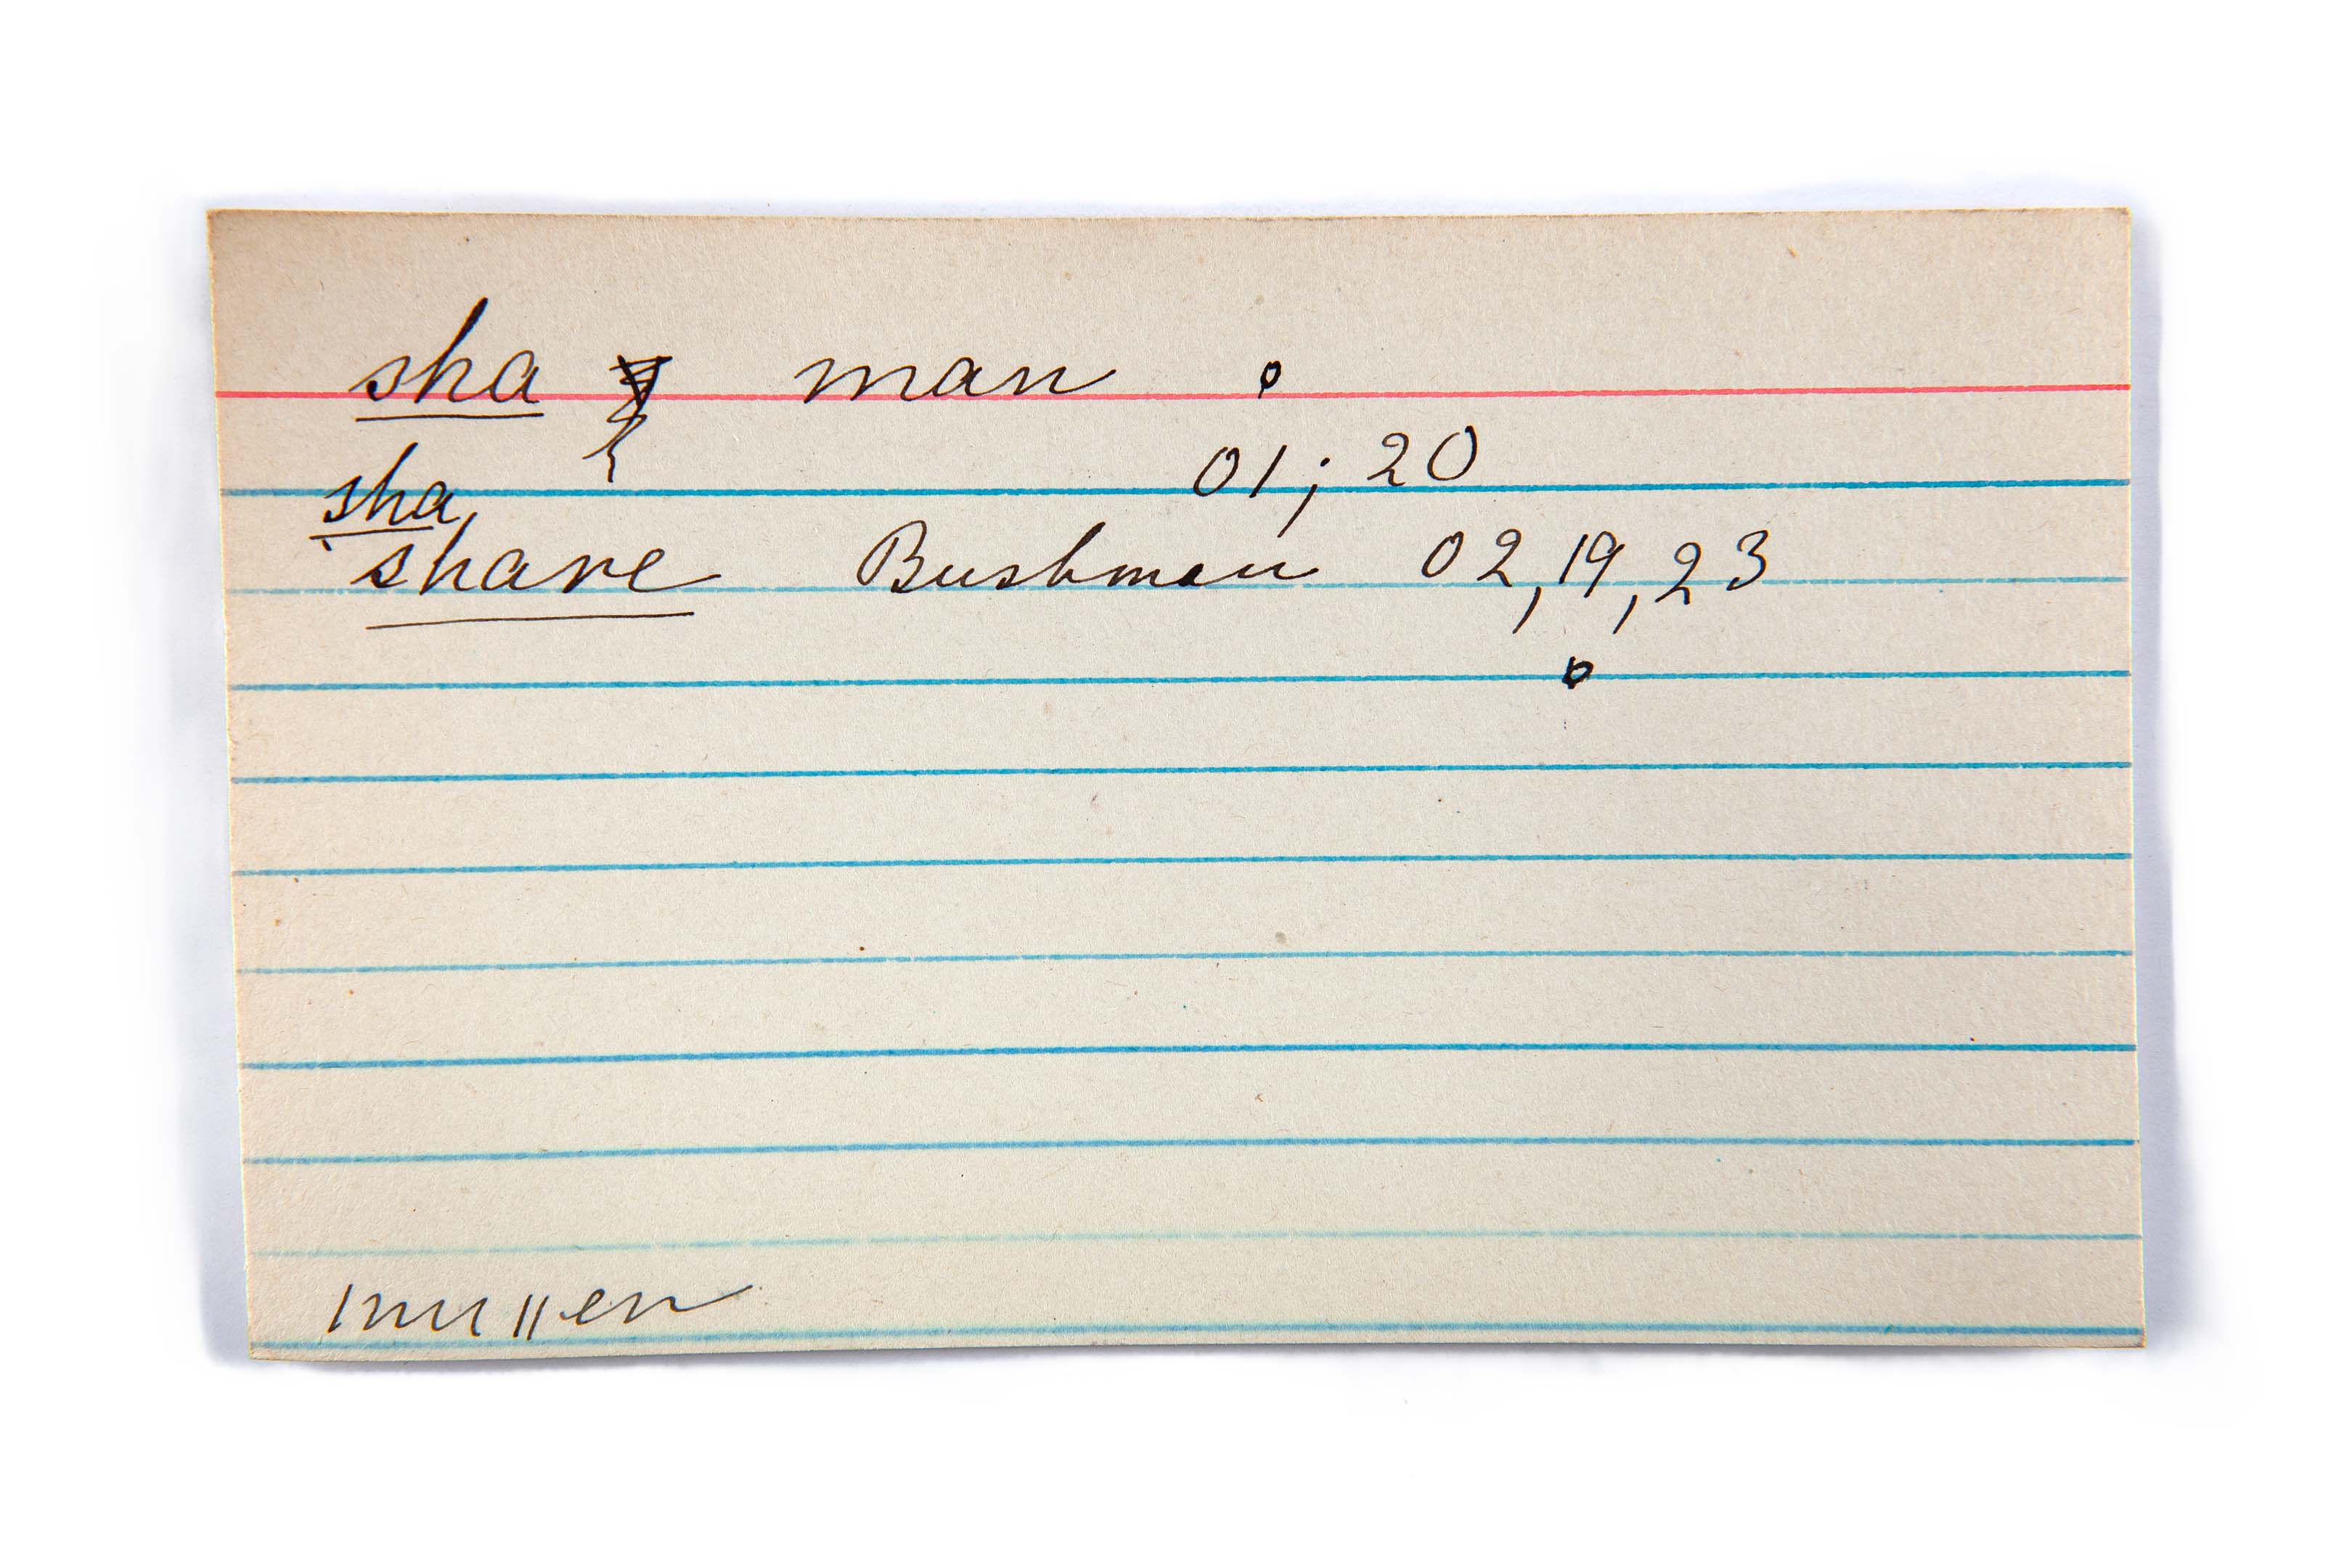 sha man o
01; 20
sha,
share Bushman 02, 19, 23
o